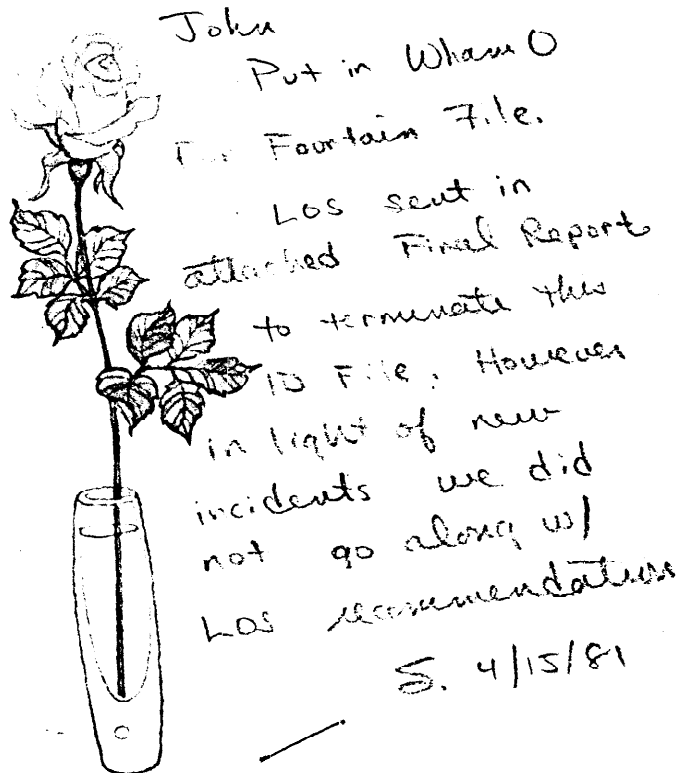 John
Put in Wham O
Fountain File.
LOS sent in
attached Final Report
to terminate this
ID File. However
in light of new
incidents we did
not go along w/
LOS recommendation
S. 4/15/81